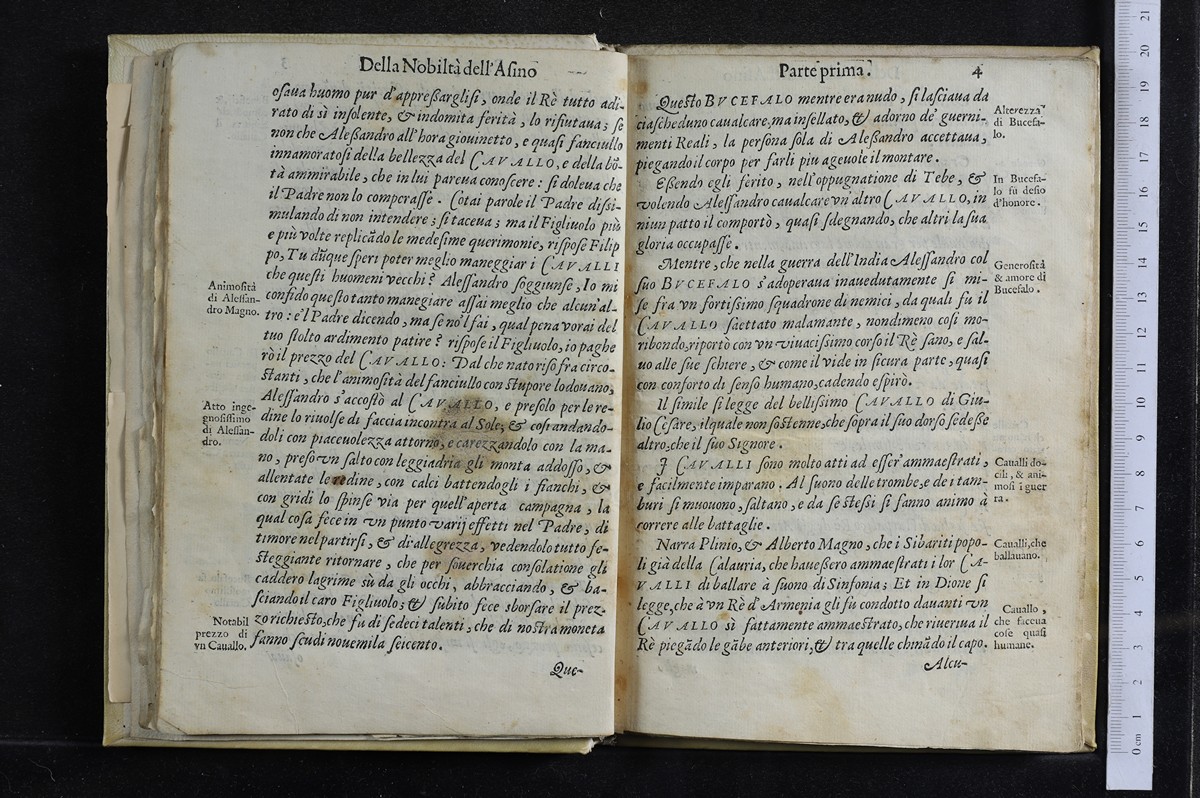 Della Nobiltà dell'Asino
osaua huomo pur d'appreßarglisi, onde il Rè tutto adi-
rato di sì insolente, & indomita ferità, lo rifiutaua; se
non che Aleßandro all'hora giouinetto, e quasi fanciullo
innamoratosi della bellezza del CAVALLO, e della bõ-
tà ammirabile, che in lui pareua conoscere: si doleua che
il Padre non lo comperasse. Cotai parole il Padre dissi-
mulando di non intendere; si taceua; ma il Figliuolo più
e più volte replicãdo le medesime querimonie, rispose Filip
po, Tu dũque speri poter meglio maneggiar i CAVALLI
che questi huomeni vecchi? Alessandro soggiunse, Io mi
confido questo tanto manegiare assai meglio che alcun'al-
tro: e'l Padre dicendo, ma se no'l fai, qual pena vorai del
tuo stolto ardimento patire? rispose il Figliuolo, io paghe
rò il prezzo del CAVALLO: Dal che nato riso fra circo-
stanti, che l'animosità del fanciullo con stupore lodouano,
Alessandro s'accostò al CAVALLO, e presolo per le re-
dine lo riuolse di faccia incontra al Sole; & così andando-
doli con piaceuolezza attorno, e carezzandolo con la ma-
no, preso vn salto con leggiadria gli monta addosso, &
allentate le redine, con calci battendogli i fianchi, &
con gridi lo spinse via per quell'aperta campagna, la
qual cosa fece in vn punto varij effetti nel Padre, di
timore nel partirsi, & di allegrezza, vedendolo tutto fe-
steggiante ritornare, che per souerchia consolatione gli
caddero lagrime sù da gli occhi, abbracciando, & ba-
sciando il caro Figliuolo; & subito fece sborsare il prez-
zo richiesto, che fu di sedeci talenti, che di nostra moneta
fanno scudi nouemila seicento.
Que-
Animosità
di Alessan-
dro Magno.
Atto inge-
gnosissimo
di Alessan-
dro.
Notabil
prezzo di
vn Cauallo.
Parte prima. 4
Questo BVCEFALO mentre era nudo, si lasciaua da
ciascheduno caualcare, ma insellato, & adorno de' guerni-
menti Reali, la persona sola di Aleßandro accettaua,
piegando il corpo per farli piu ageuole il montare.
Eßendo egli ferito, nell'oppugnatione di Tebe, &
volendo Alessandro caualcare vn'altro CAVALLO, in
niun patto il comportò, quasi sdegnando, che altri la sua
gloria occupasse.
Mentre, che nella guerra dell'India Alessandro col
suo BVCEFALO s'adoperaua inauedutamente si mi-
se fra vn fortissimo squadrone di nemici, da quali fù il
CAVALLO saettato malamante, nondimeno così mo-
ribondo, riportò con vn viuacissimo corso il Rè sano, e sal-
uo alle sue schiere, & come il vide in sicura parte, quasi
con conforto di senso humano, cadendo espirò.
Il simile si legge del bellissimo CAVALLO di Giu-
lio Cesare, il quale non sostenne, che sopra il suo dorso sedeße
altro, che il suo Signore.
I CAVALLI sono molto atti ad esser'ammaestrati,
e facilmente imparano. Al suono delle trombe, e dei tam-
buri si muouono, saltano, e da se stessi si fanno animo à
correre alle battaglie.
Narra Plinio, & Alberto Magno, che i Sibariti popo-
li già della Calauria, che haueßero ammaestrati i lor CA-
VALLI di ballare à suono di Sinfonia; Et in Dione si
legge, che à vn Rè d'Armenia gli fù condotto dauanti vn
CAVALLO sì fattamente ammaestrato, che riueriua il
Rè piegãdo le gãbe anteriori, & tra quelle chinãdo il capo.
Alcu-
Alterezza
di Bucefa-
lo.
In Bucefa-
lo fù desio
d'honore.
Generosità
& amore di
Bucefalo.
Caualli do-
cili, & ani-
mosi i guer
ra.
Caualli, che
ballauano.
Cauallo,
che faceua
cose quasi
humane.
0 cm 1 2 3 4 5 6 7 8 9 10 11 12 13 14 15 16 17 18 19 20 21